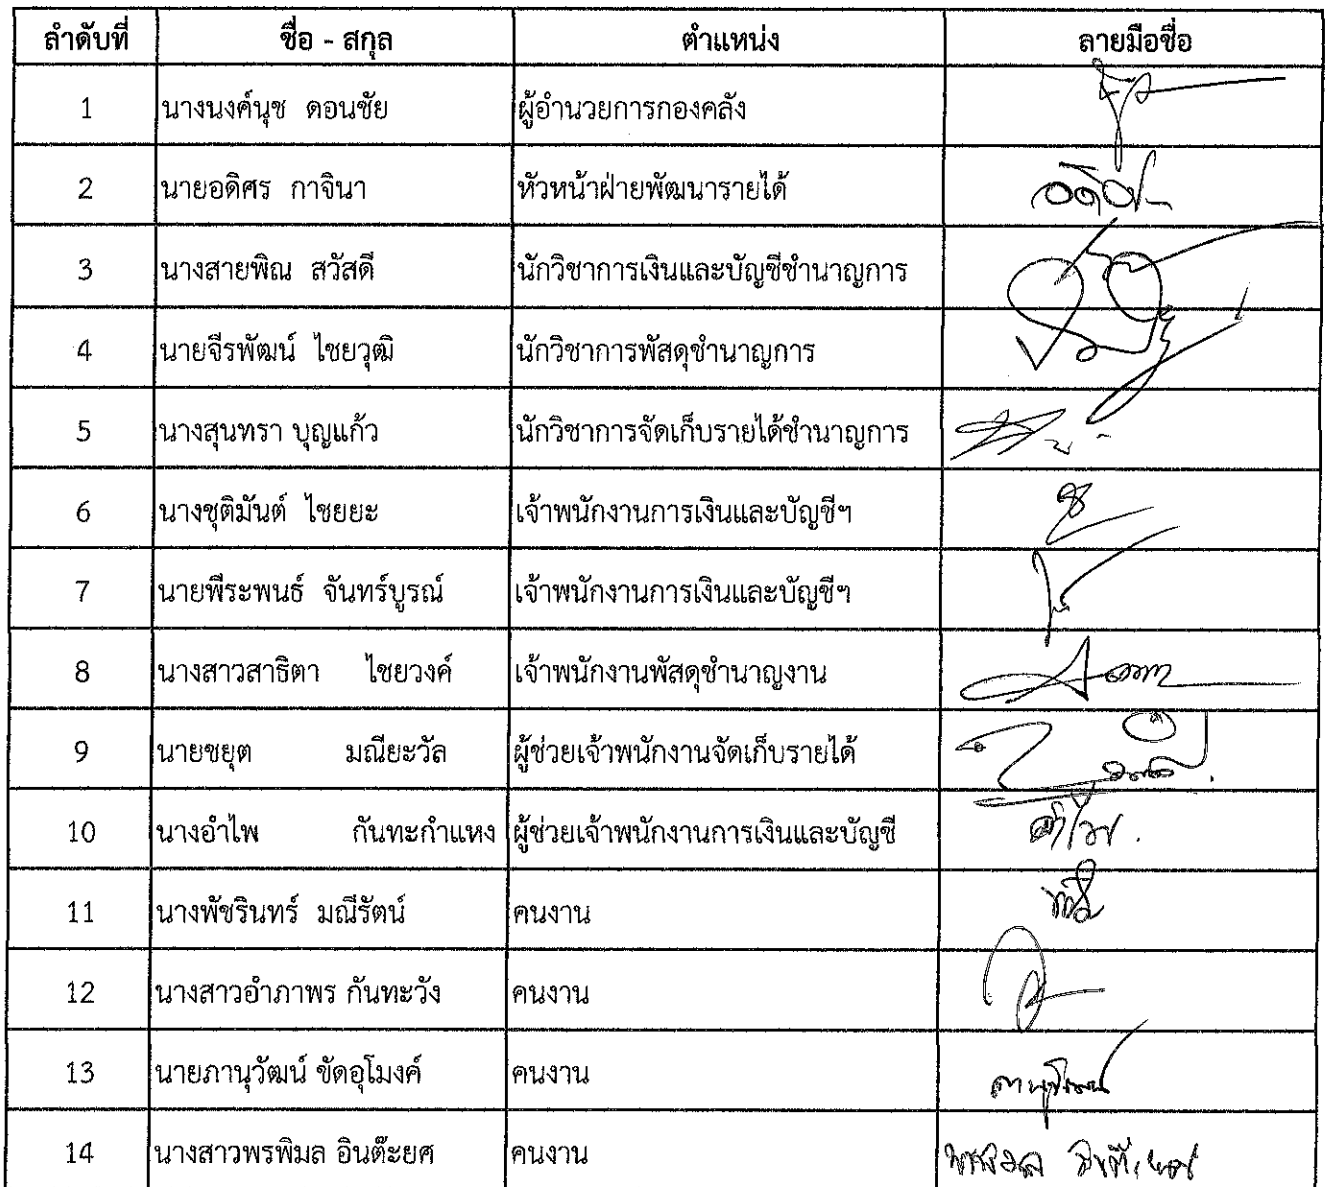 ลำดับที่ ชื่อ - สกุล ตำแหน่ง ลายมือชื่อ
1 นางนงค์นุช ดอนชัย ผู้อำนวยการกองคลัง
2 นายอดิศร กาจินา หัวหน้าฝ่ายพัฒนารายได้
3 นางสายพิณ สวัสดี นักวิชาการเงินและบัญชีชำนาญการ
4 นายจีรพัฒน์ ไชยวุฒิ นักวิชาการพัสดุชำนาญการ
5 นางสุนทรา บุญแก้ว นักวิชาการจัดเก็บรายได้ชำนาญการ
6 นางชุติมันต์ ไชยยะ เจ้าพนักงานการเงินและบัญชีฯ
7 นายพีระพนธ์ จันทร์บูรณ์ เจ้าพนักงานการเงินและบัญชีฯ
8 นางสาวสาธิตา ไชยวงค์ เจ้าพนักงานพัสดุชำนาญงาน
9 นายชยุต มณียะวัล ผู้ช่วยเจ้าพนักงานจัดเก็บรายได้
10 นางอำไพ กันทะกำแหง ผู้ช่วยเจ้าพนักงานการเงินและบัญชี อำไพ.
11 นางพัชรินทร์ มณีรัตน์ คนงาน
12 นางสาวอำภาพร กันทะวัง คนงาน
13 นายภานุวัฒน์ ขัดอุโมงค์ คนงาน ภานุวัฒน์
14 นางสาวพรพิมล อินต๊ะยศ คนงาน พรพิมล อินต๊ะยศ